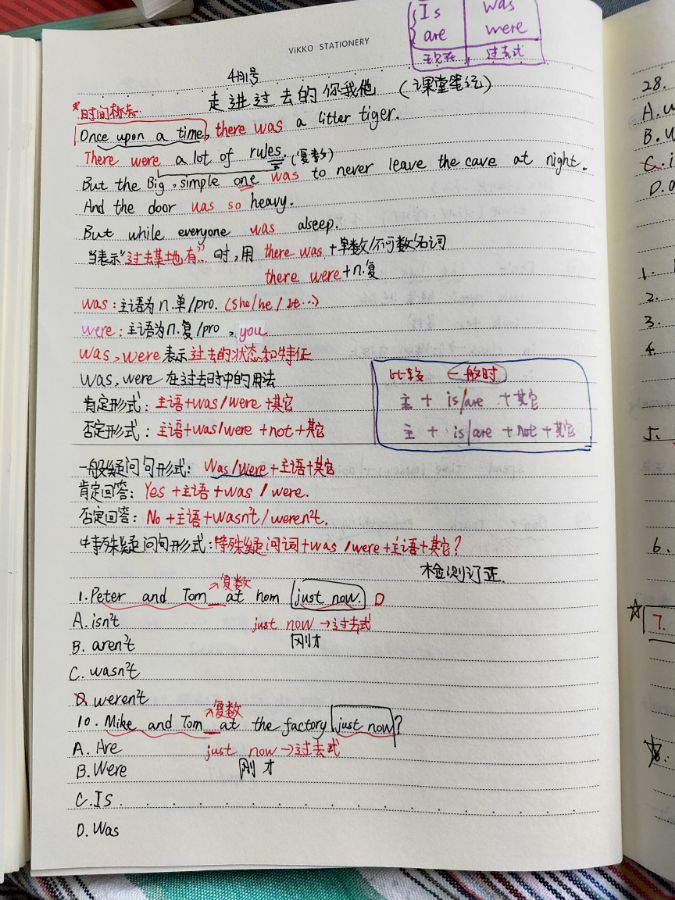 VIKKO STATIONERY
Is was
are were
现在 过去式
4月1号
走进过去的你我他 (课堂笔记)
*时间标志.
Once upon a time, there was a litter tiger.
There were a lot of rules. (复数)
But the Big, simple one was to never leave the cave at night.
And the door was so heavy.
But while everyone was alseep.
当表示“过去某地有”时,用 there was+单数/不可数名词
there were+n.复
was:主语为n.单/pro.(she/he/it…)
were:主语为n.复/pro, you
was,were表示过去的状态和特征
was,were在过去时中的用法
比较 一般时
肯定形式:主语+was/were+其它
主 + is/are + 其它
否定形式:主语+was/were+not+其它
主 + is/are + not + 其它
一般疑问句形式: Was/Were+主语+其它
肯定回答: Yes +主语+was / were.
否定回答: No +主语+wasn't/weren't.
特殊疑问句形式:特殊疑问词+was/were+主语+其它?
检测订正
→复数
1. Peter and Tom __ at hom just now. D
A. isn't just now →过去式
B. aren't 刚才
C. wasn't
D. weren't
→复数
10. Mike and Tom __ at the factory just now?
A. Are just now →过去式
B. Were 刚才
C. Is
D. Was
28.
A.
B.
C.
D.
1.
2.
3.
4.
5.
6.
7.
8.